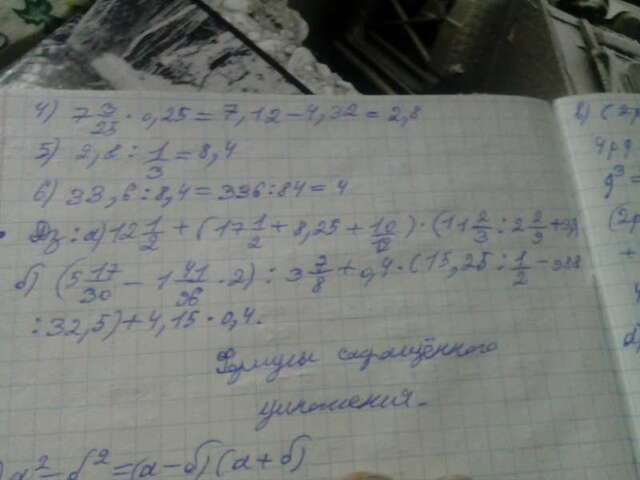 4) 7 3/25 · 0,25 = 7,12 - 4,32 = 2,8
5) 2,8 : 1/3 = 8,4
6) 33,6 : 8,4 = 336 : 84 = 4
Дз: а) 12 1/2 + (17 1/2 + 8,25 + 10/12) · (11 2/3 : 2 2/3 +
б) (5 17/30 - 1 41/36 · 2) : 3 7/8 + 0,4 · (15,25 : 1/2 -
: 32,5) + 4,15 · 0,4.
Формулы сокращённого
умножения.
а² - б² = (а - б) (а + б)
в) (2р
4рд
(2р
+
4